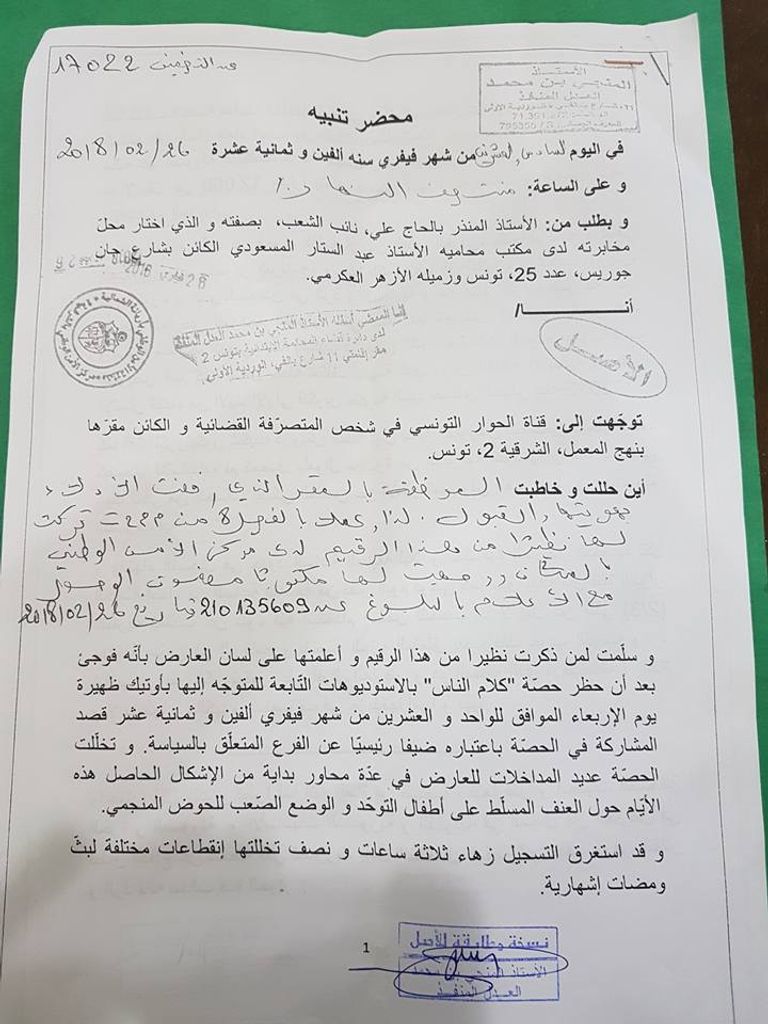 17022
الأستاذ
المنجي بن محمد
العدل المنفذ
محضر تنبيه
في اليوم السادس والعشرين من شهر فيفري سنه ألفين و ثمانية عشرة 2018/02/26
و على الساعة: منتصف النهار
و بطلب من: الأستاذ المنذر بالحاج علي، نائب الشعب، بصفته و الذي اختار محلّ
مخابرته لدى مكتب محاميه الأستاذ عبد الستار المسعودي الكائن بشارع جان
جوريس، عدد 25، تونس وزميله الأزهر العكرمي.
أنــا/
إنا الممضي أسفله الأستاذ المنجي بن محمد العدل المنفذ
لدى دائرة قضاء المحكمة الابتدائية بتونس 2
مقر إقامتي 11 شارع يالفي، الوردية الأولى
الأصل
توجّهت إلى: قناة الحوار التونسي في شخص المتصرّفة القضائية و الكائن مقرّها
بنهج المعمل، الشرقية 2، تونس.
أين حللت و خاطبت الموظفة بالمقر التي رفضت الإدلاء
بهويتها والقبول. لذا وعملا بالفصل 8 من م م م ت تركت
لها نظيرا من هذا الرقيم لدى مركز الأمن الوطني
بالمكان ووجهت لها مكتوبا مضمون الوصول
مع الإعلام بالبلوغ عدد 210135609 بتاريخ 2018/02/26
و سلّمت لمن ذكرت نظيرا من هذا الرقيم و أعلمتها على لسان العارض بأنّه فوجئ
بعد أن حظر حصّة "كلام الناس" بالاستوديوهات التّابعة للمتوجّه إليها بأوتيك ظهيرة
يوم الإربعاء الموافق للواحد و العشرين من شهر فيفري ألفين و ثمانية عشر قصد
المشاركة في الحصّة باعتباره ضيفا رئيسيّا عن الفرع المتعلّق بالسياسة. و تخلّلت
الحصّة عديد المداخلات للعارض في عدّة محاور بداية من الإشكال الحاصل هذه
الأيّام حول العنف المسلّط على أطفال التوحّد و الوضع الصّعب للحوض المنجمي.
و قد استغرق التسجيل زهاء ثلاثة ساعات و نصف تخللتها إنقطاعات مختلفة لبثّ
ومضات إشهارية.
1
نسخة مطابقة للأصل
الأستاذ المنجي بن محمد
العدل المنفذ